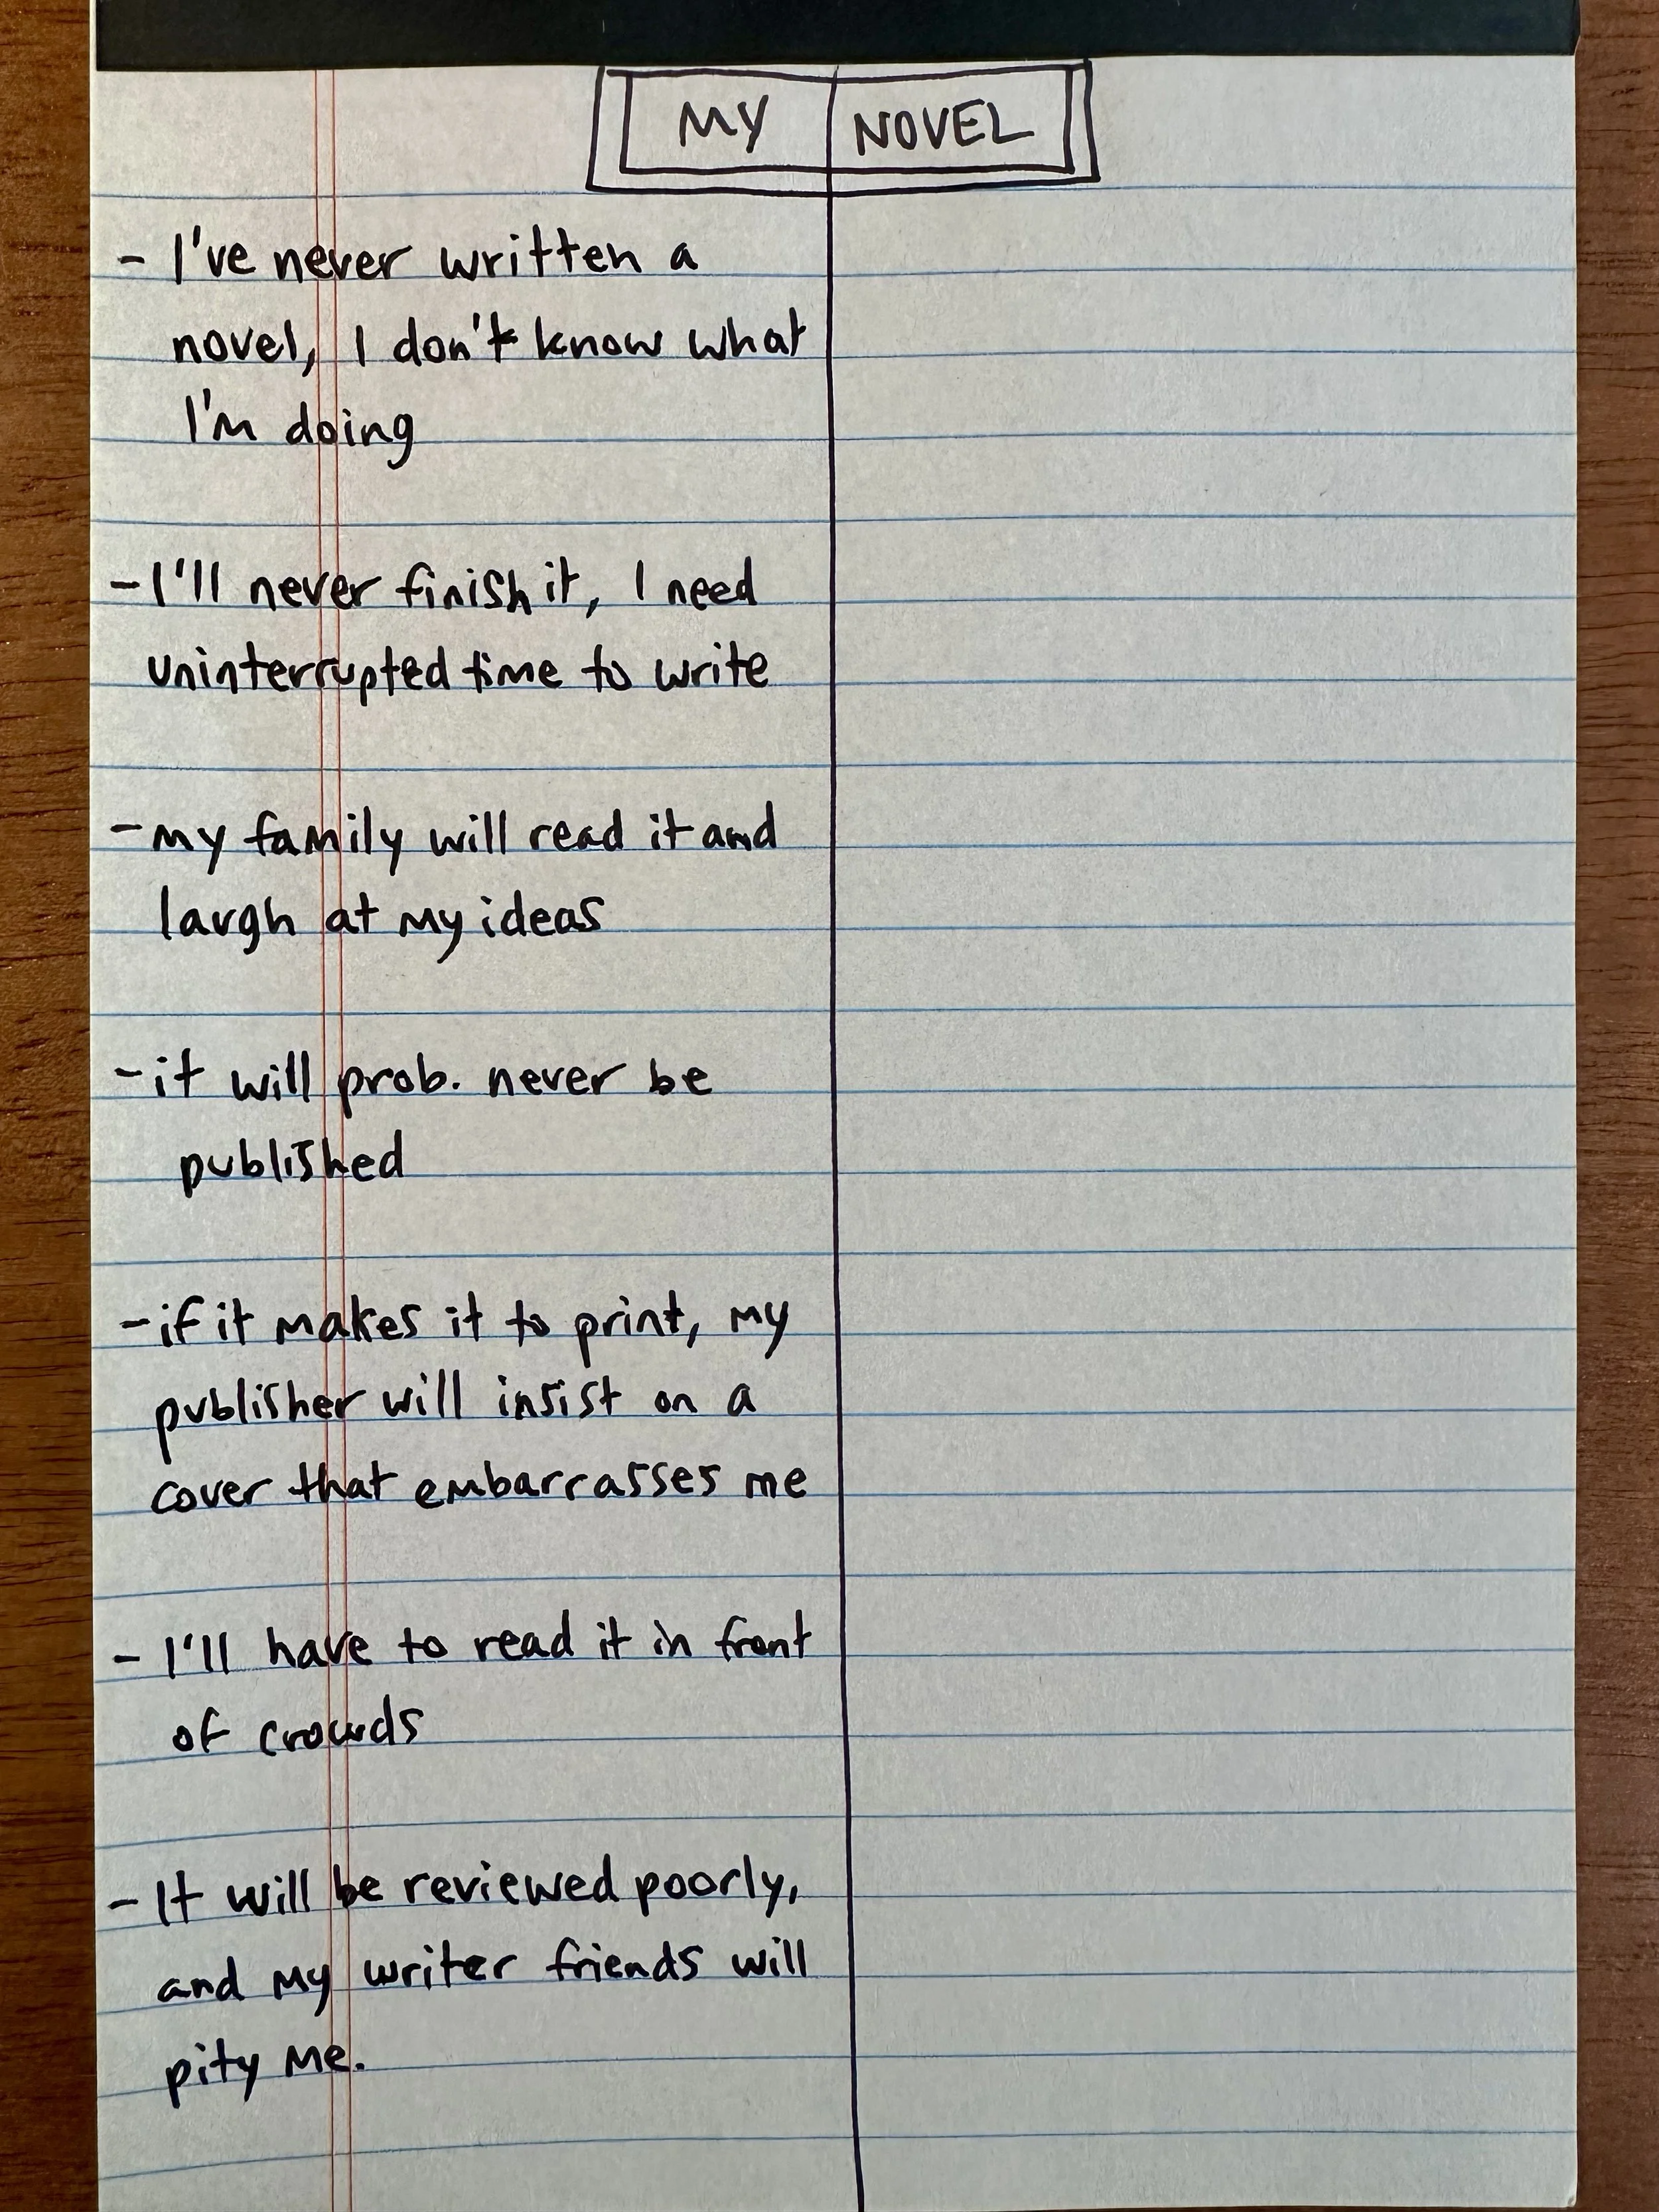 MY NOVEL
- I've never written a
novel, I don't know what
I'm doing
- I'll never finish it, I need
uninterrupted time to write
- my family will read it and
laugh at my ideas
- it will prob. never be
published
- if it makes it to print, my
publisher will insist on a
cover that embarrasses me
- I'll have to read it in front
of crowds
- It will be reviewed poorly,
and my writer friends will
pity me.